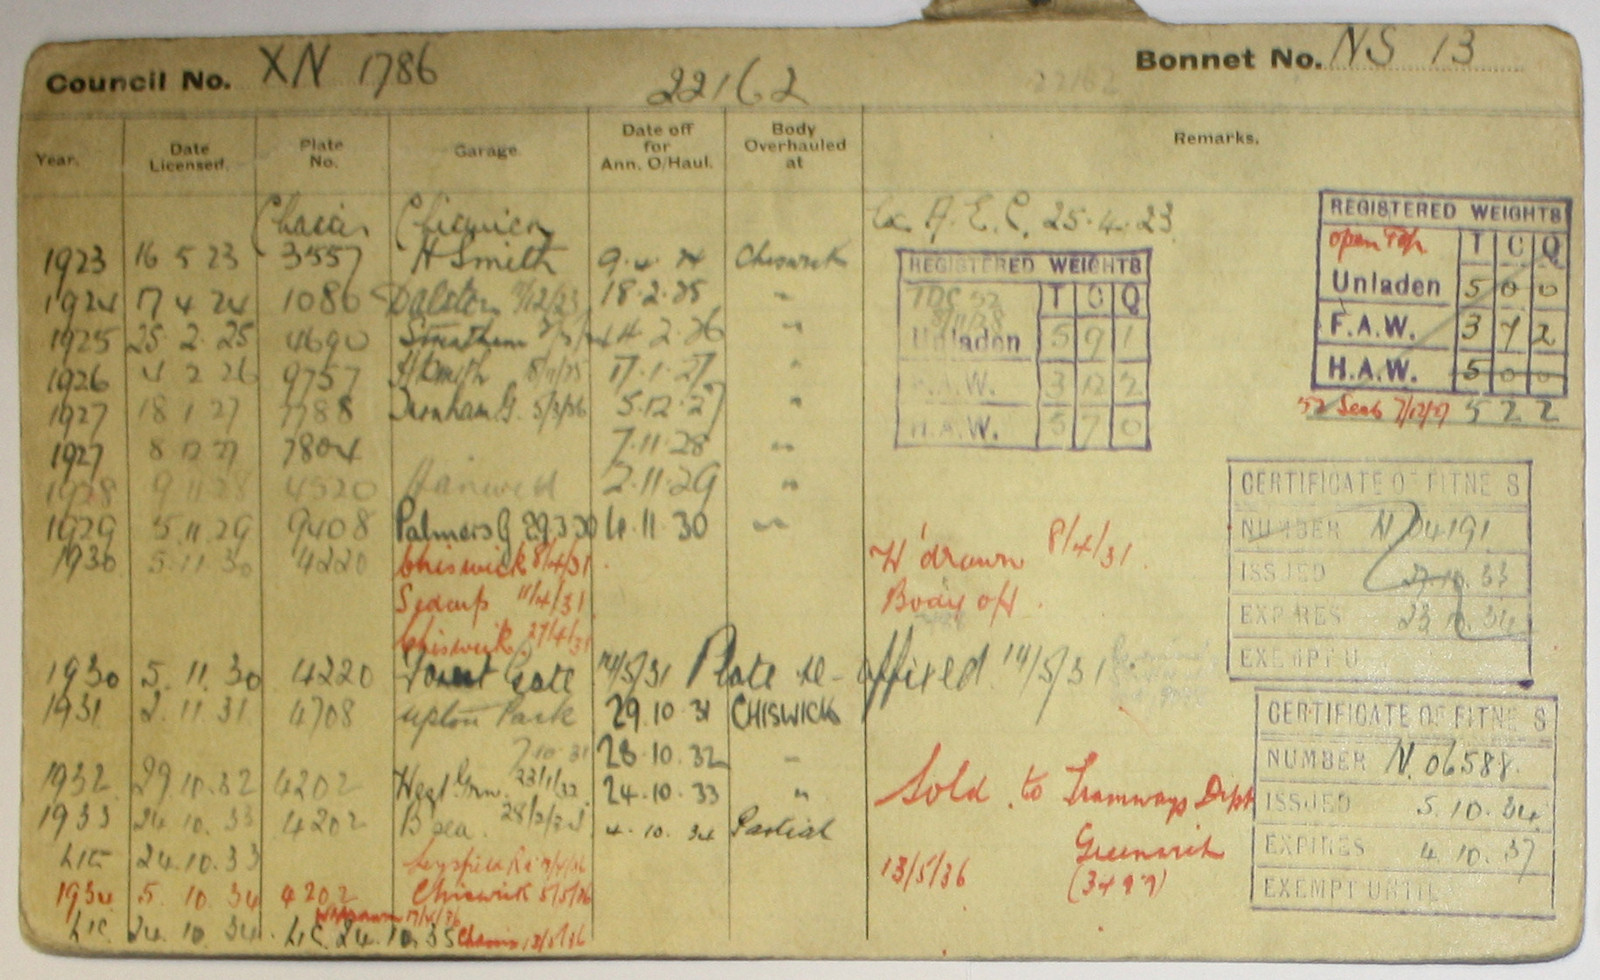 Council No. XN 1786
22162
22162
Bonnet No. NS 13
Year.
Date Licensed.
Plate No.
Garage.
Date off for Ann. O/Haul.
Body Overhauled at
Remarks.
Chassis Chiswick
Ex. A.E.C. 25.4.23
1923 16 5 23 3557 H Smith 9.4.24 Chiswick
1924 17 4 24 1086 Dalston 11/12/23 18.2.25 "
1925 25.2.25 4690 Streatham 14.2.26 "
1926 4 2 26 9757 H Smith 17.1.27 "
1927 18 1 27 7788 Turnham G. 5/3/26 5.12.27 "
1927 8 12 27 7804 7.11.28 "
1928 9 11 28 4520 Hanwell 2.11.29 "
1929 5.11.29 9408 Palmers G 29.3.30 4.11.30 "
1930 5.11.30 4220 Chiswick 8/4/31
Sidcup 11/4/31
Chiswick. 27/4/31
1930 5.11.30 4220 Forest Gate 14/5/31 Plate re-affixed 14/5/31
1931 2.11.31 4708 Upton Park 29.10.31 CHISWICK
7.10.31 28.10.32 "
1932 29.10.32 4202 West Grn. 23/1/32 24.10.33 "
1933 24.10.33 4202 B sea. 4.10.34 Partial
Lic 24.10.33
1934 5.10.34 4202 Chiswick 5/5/36
Withdrawn
Lic. 24.10.34. Lic. 24.10.35 Chassis 13/5/36
REGISTERED WEIGHTS
TDC 52
8/11/28
T C Q
Unladen 5 9 1
F.A.W. 3 12 2
H.A.W. 5 7 0
REGISTERED WEIGHTS
open Top. T C Q
Unladen 5 0 0
F.A.W. 3 7 2
H.A.W. 5 0 0
52 Seats 7/12/27 5 2 2
W'drawn 8/4/31.
Body off.
CERTIFICATE OF FITNESS
NUMBER N 04191
ISSUED 27.10.33
EXPIRES 23.10.34
EXEMPT U
CERTIFICATE OF FITNESS
NUMBER N. 06588.
ISSUED 5.10.34
EXPIRES 4.10.37
EXEMPT UNTIL
Sold to Tramways Dept
Greenwich
13/5/36